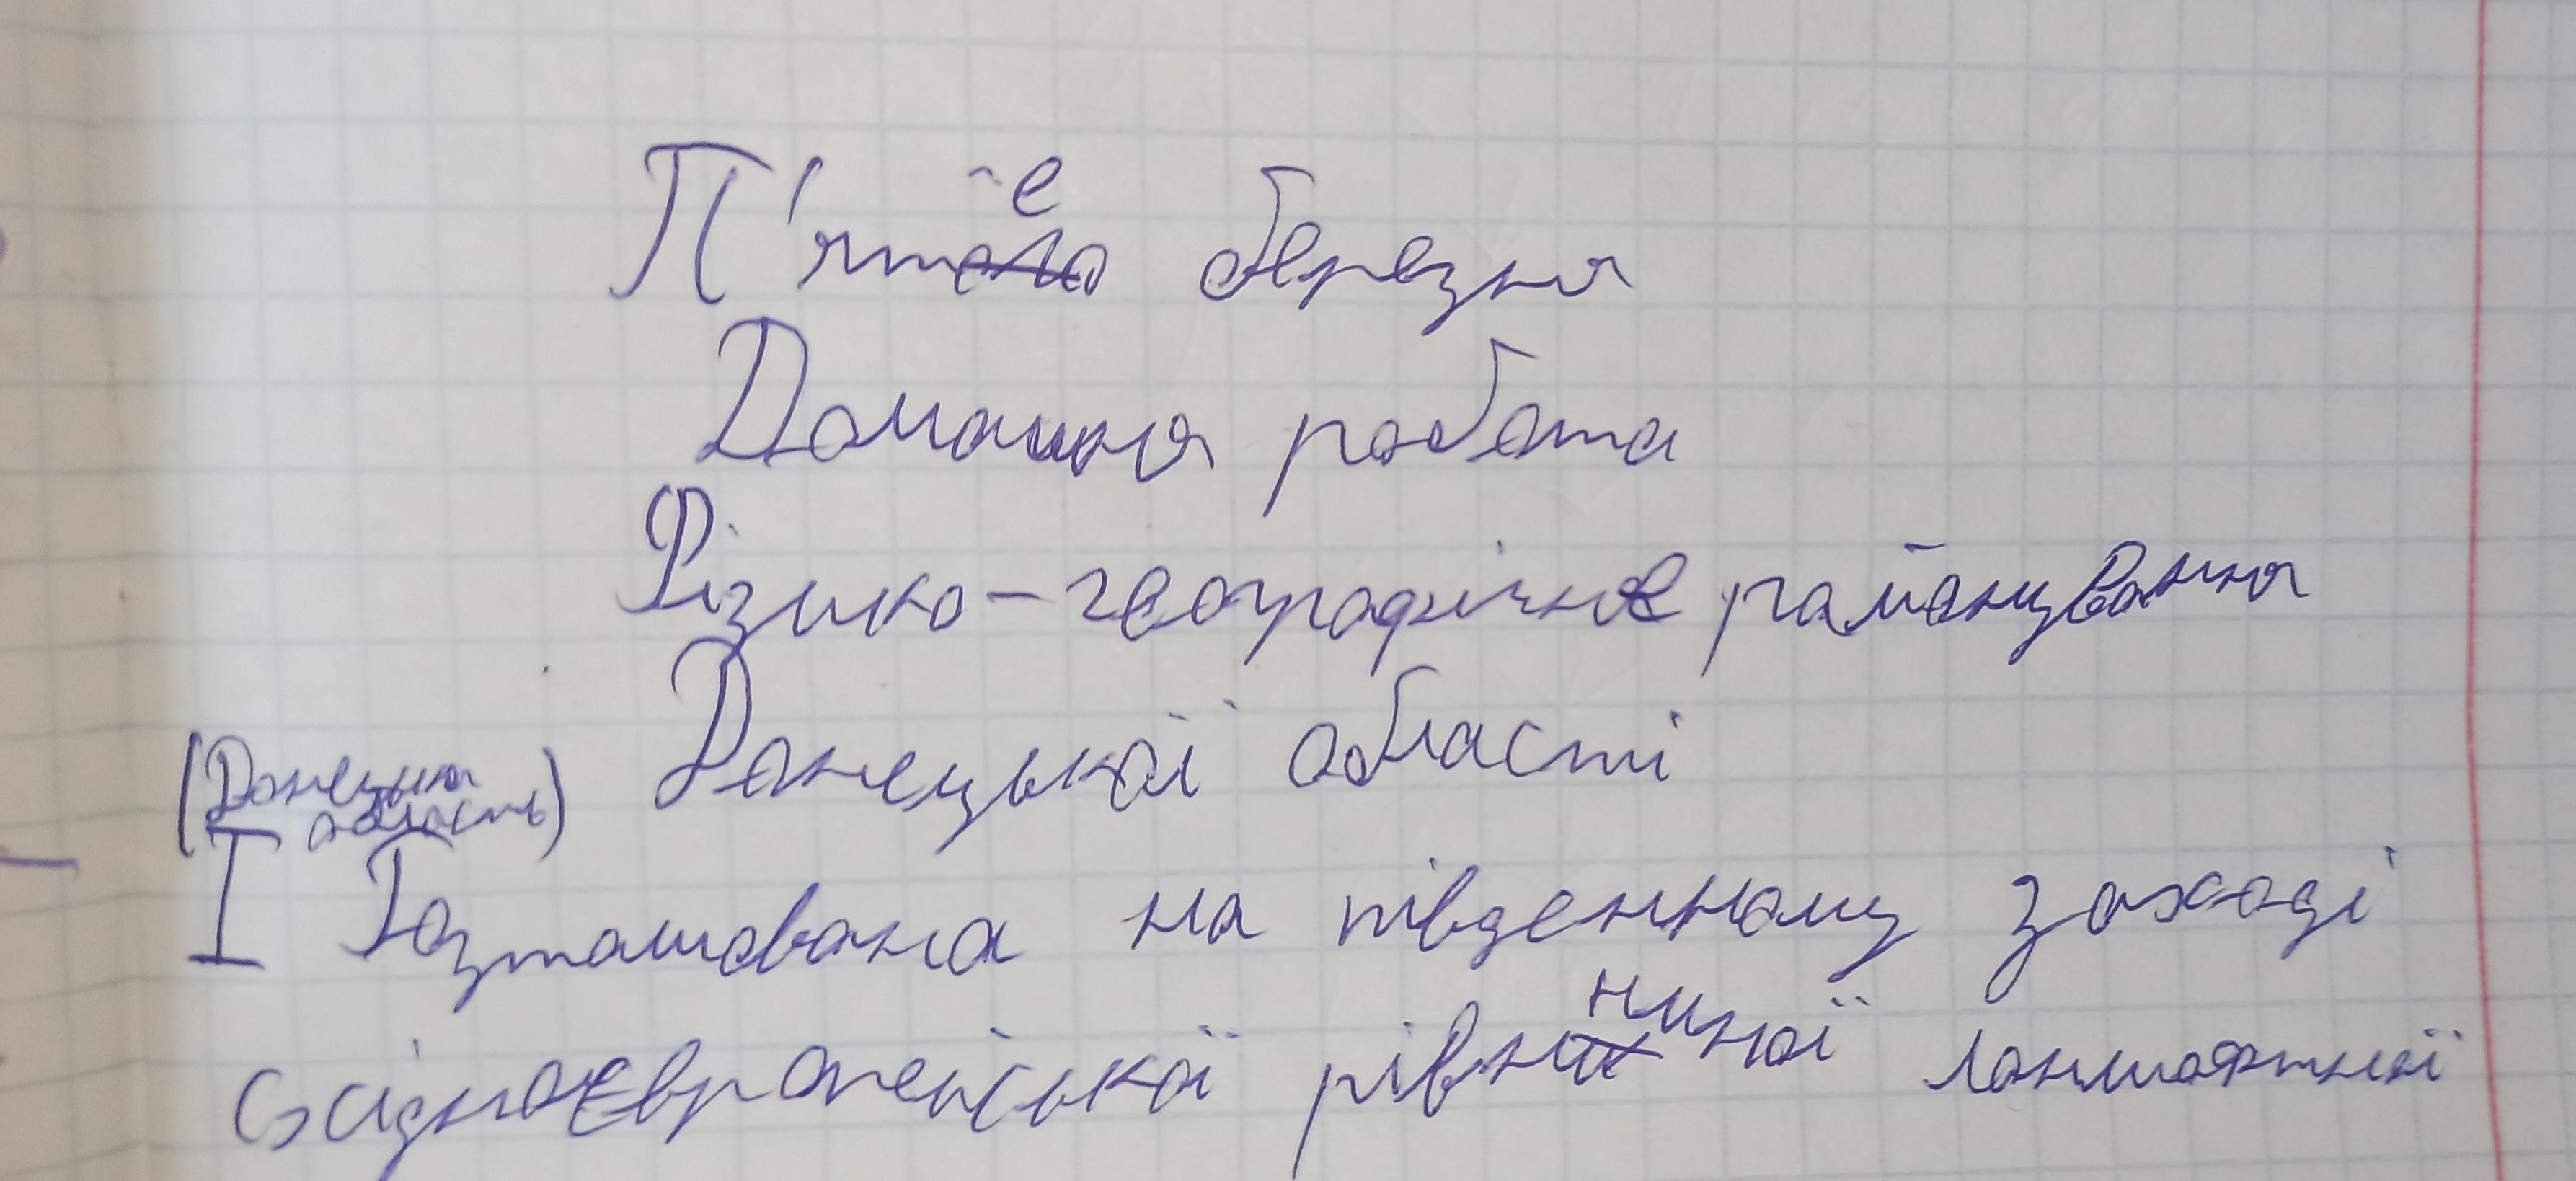 П'яте березня
Домашня робота
Фізико-географічне районування
Донецької області
(Донецька
область)
I Розташована на південному заході
східноєвропейської рівнинної ланшафтної